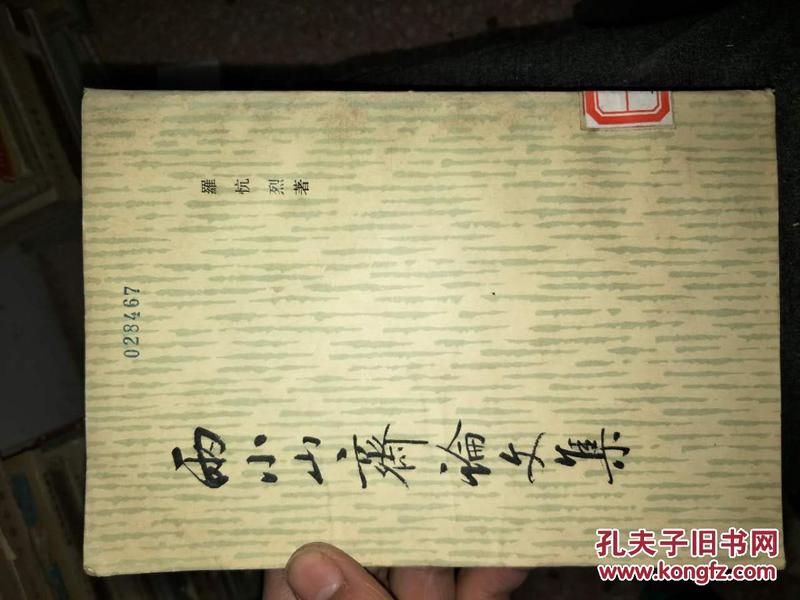 羅忼烈著
028467
兩小山齋論文集
孔夫子旧书网
www.kongfz.com